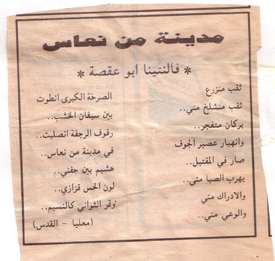 مدينة من نعاس
* فالنتينا ابو عقصة *
ثقب منزرع
ثقب منشلخ مني..
بركان متفجر..
وانهيار عصير الجوف
صار في المقتبل..
يهرب الصبا مني..
والادراك مني
والوعي مني..
الصرخة الكبرى انطوت
بين سيقان الخشب..
رفوف الرجفة انصلبت..
في مدينة من نعاس..
هشيم بين جفني..
لون الحس قزازي..
وتمر الثواني كالنسيم..
(معليا - القدس)